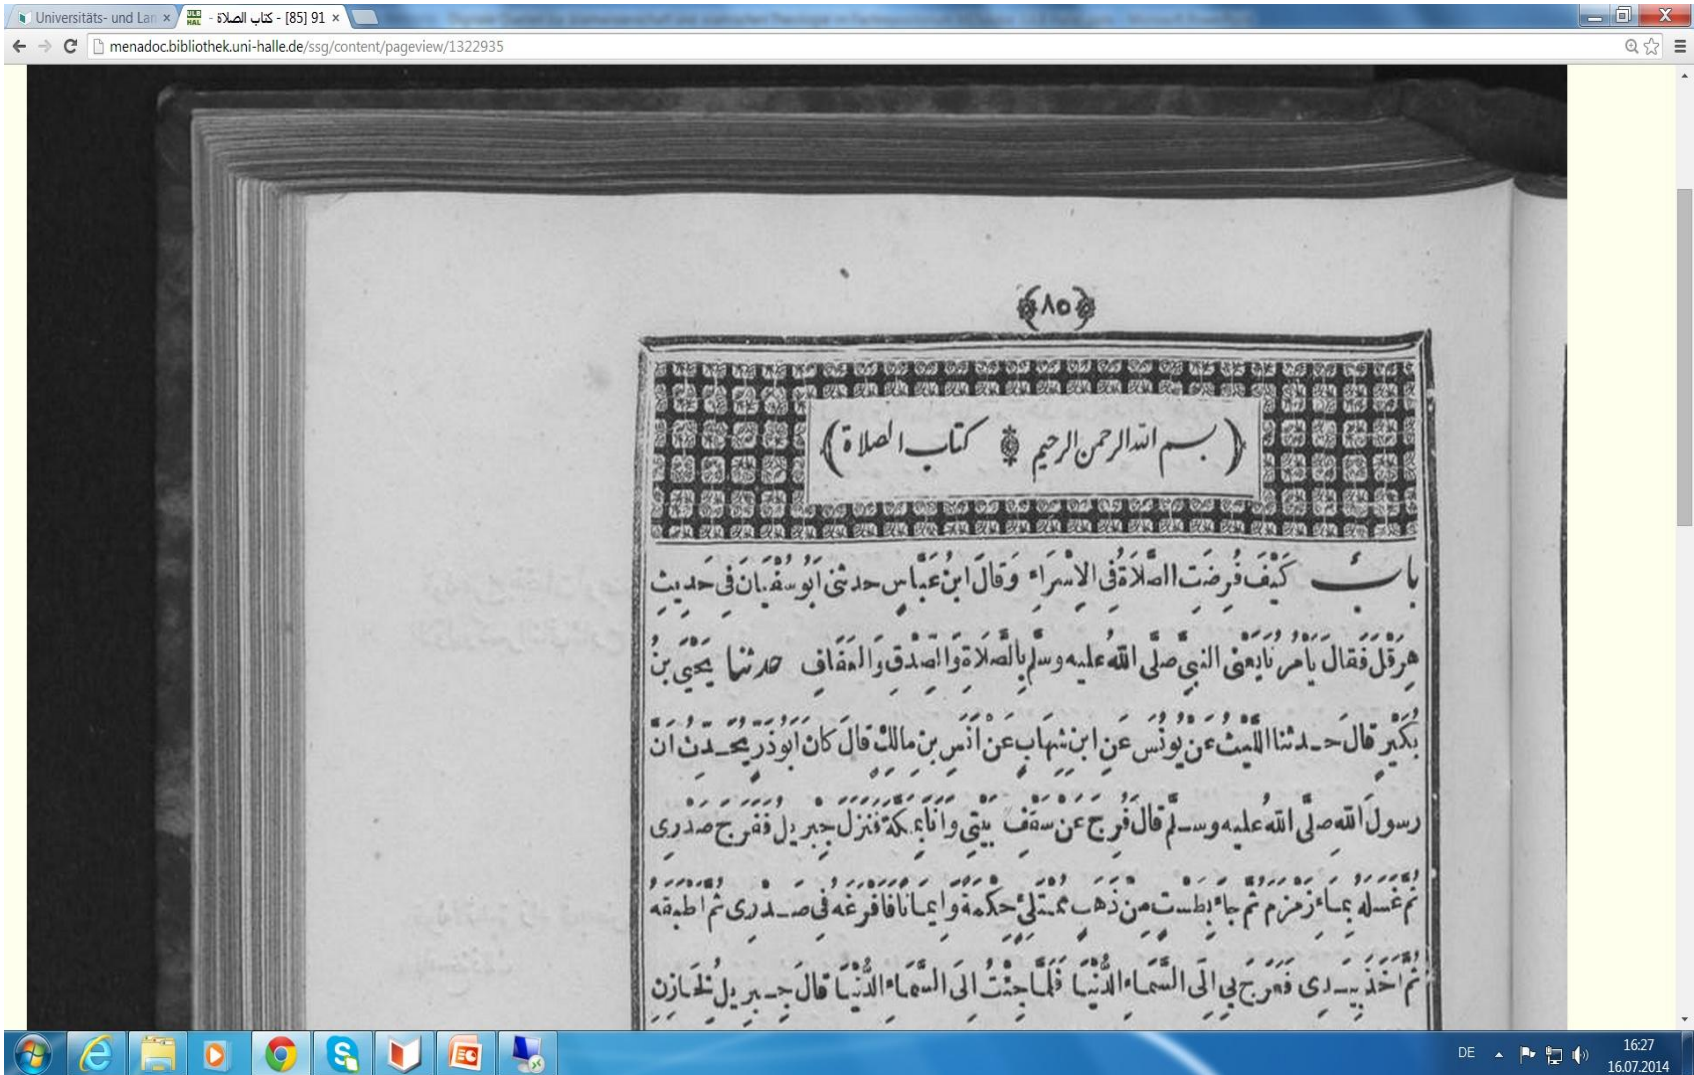 Universitäts- und Lan
91 [85] - كتاب الصلاة -
menadoc.bibliothek.uni-halle.de/ssg/content/pageview/1322935
﴿٨٥﴾
(بسم الله الرحمن الرحيم ۞ كتاب الصلاة)
بابٌ كَيْفَ فُرِضَتِ الصَّلَاةُ فِي الْإِسْرَاءِ وَقَالَ ابْنُ عَبَّاسٍ حدثنى أَبُو سُفْيَانَ فِى حَدِيثِ
هِرَقْلَ فَقَالَ يَأْمُرُنَا يَعْنِى النبيَّ صلَّى اللهُ عليه وسلَّم بِالصَّلَاةِ وَالصِّدْقِ وَالعَفَافِ حدثنا يَحْيَى بنُ
بُكَيْرٍ قالَ حـدثنا اللَّيْثُ عَنْ يُونُسَ عَنِ ابنِ شِهَابٍ عَنْ أَنَسِ بنِ مالِكٍ قالَ كانَ أَبُو ذَرٍّ يُحَـدِّثُ أنَّ
رسولَ اللهِ صلَّى اللهُ عليه وسـلَّم قالَ فُرِجَ عَنْ سَقْفِ بَيْتِى وَأَنَا بِمَكَّةَ فَنَزَلَ جِبْرِيلُ فَفَرَجَ صَدْرِى
ثُمَّ غَسَلَهُ بِمَاءِ زَمْزَمَ ثُمَّ جاءَ بِطَسْتٍ مِنْ ذَهَبٍ مُمْتَلِئٍ حِكْمَةً وَإِيمَانًا فَأَفْرَغَهُ فِى صَـدْرِى ثُمَّ أَطْبَقَهُ
ثُمَّ أَخَذَ بِيَـدِى فَعَرَجَ بِى إِلَى السَّمَاءِ الدُّنْيَا فَلَمَّا جِئْتُ إلَى السَّمَاءِ الدُّنْيَا قالَ جِـبْرِيلُ لِخَازِنِ
DE
16:27
16.07.2014